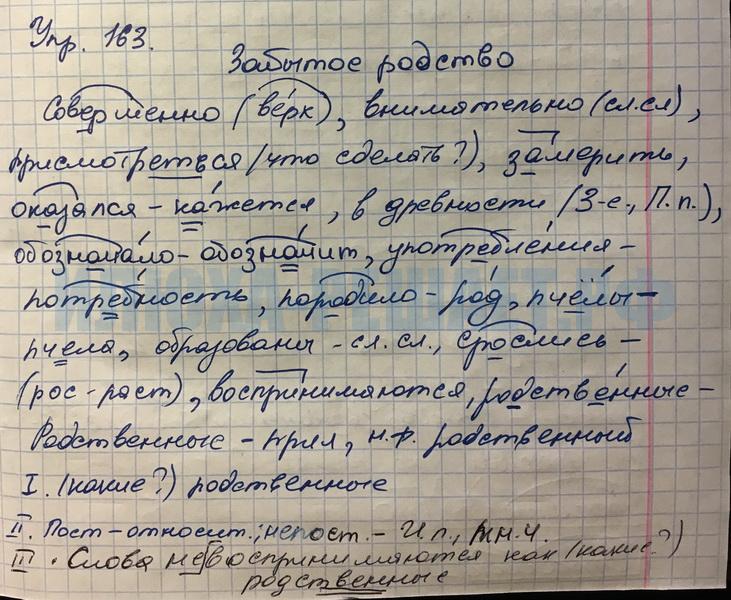 Упр. 163.
Забытое родство
Совершенно (верх), внимательно (сл.сл),
присмотреться (что сделать?), замерить,
оказался – кажется, в древности (3-е., П.п.),
обозначало – обозначит, употребления –
потребность, породило – род, пчёлы –
пчела, образованы – сл. сл., срослись –
(рос – раст), воспринимаются, родственные –
Родственные – прил, н.ф. родственный
I. (какие?) родственные
II. Пост – относит.; непост. – И.п., мн.ч.
III. Слова не воспринимаются как (какие?)
родственные